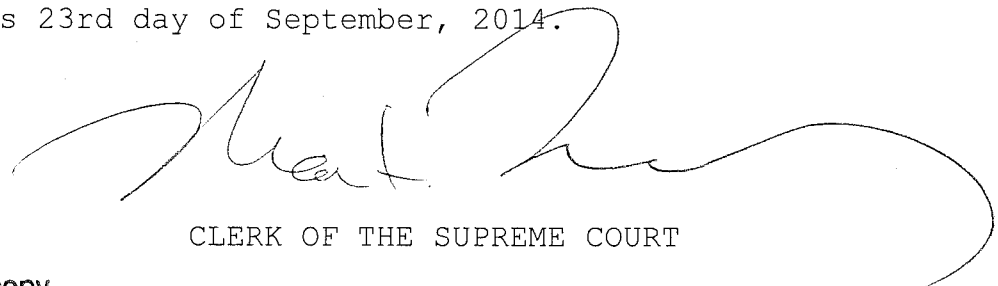 s 23rd day of September, 2014.
CLERK OF THE SUPREME COURT
copy